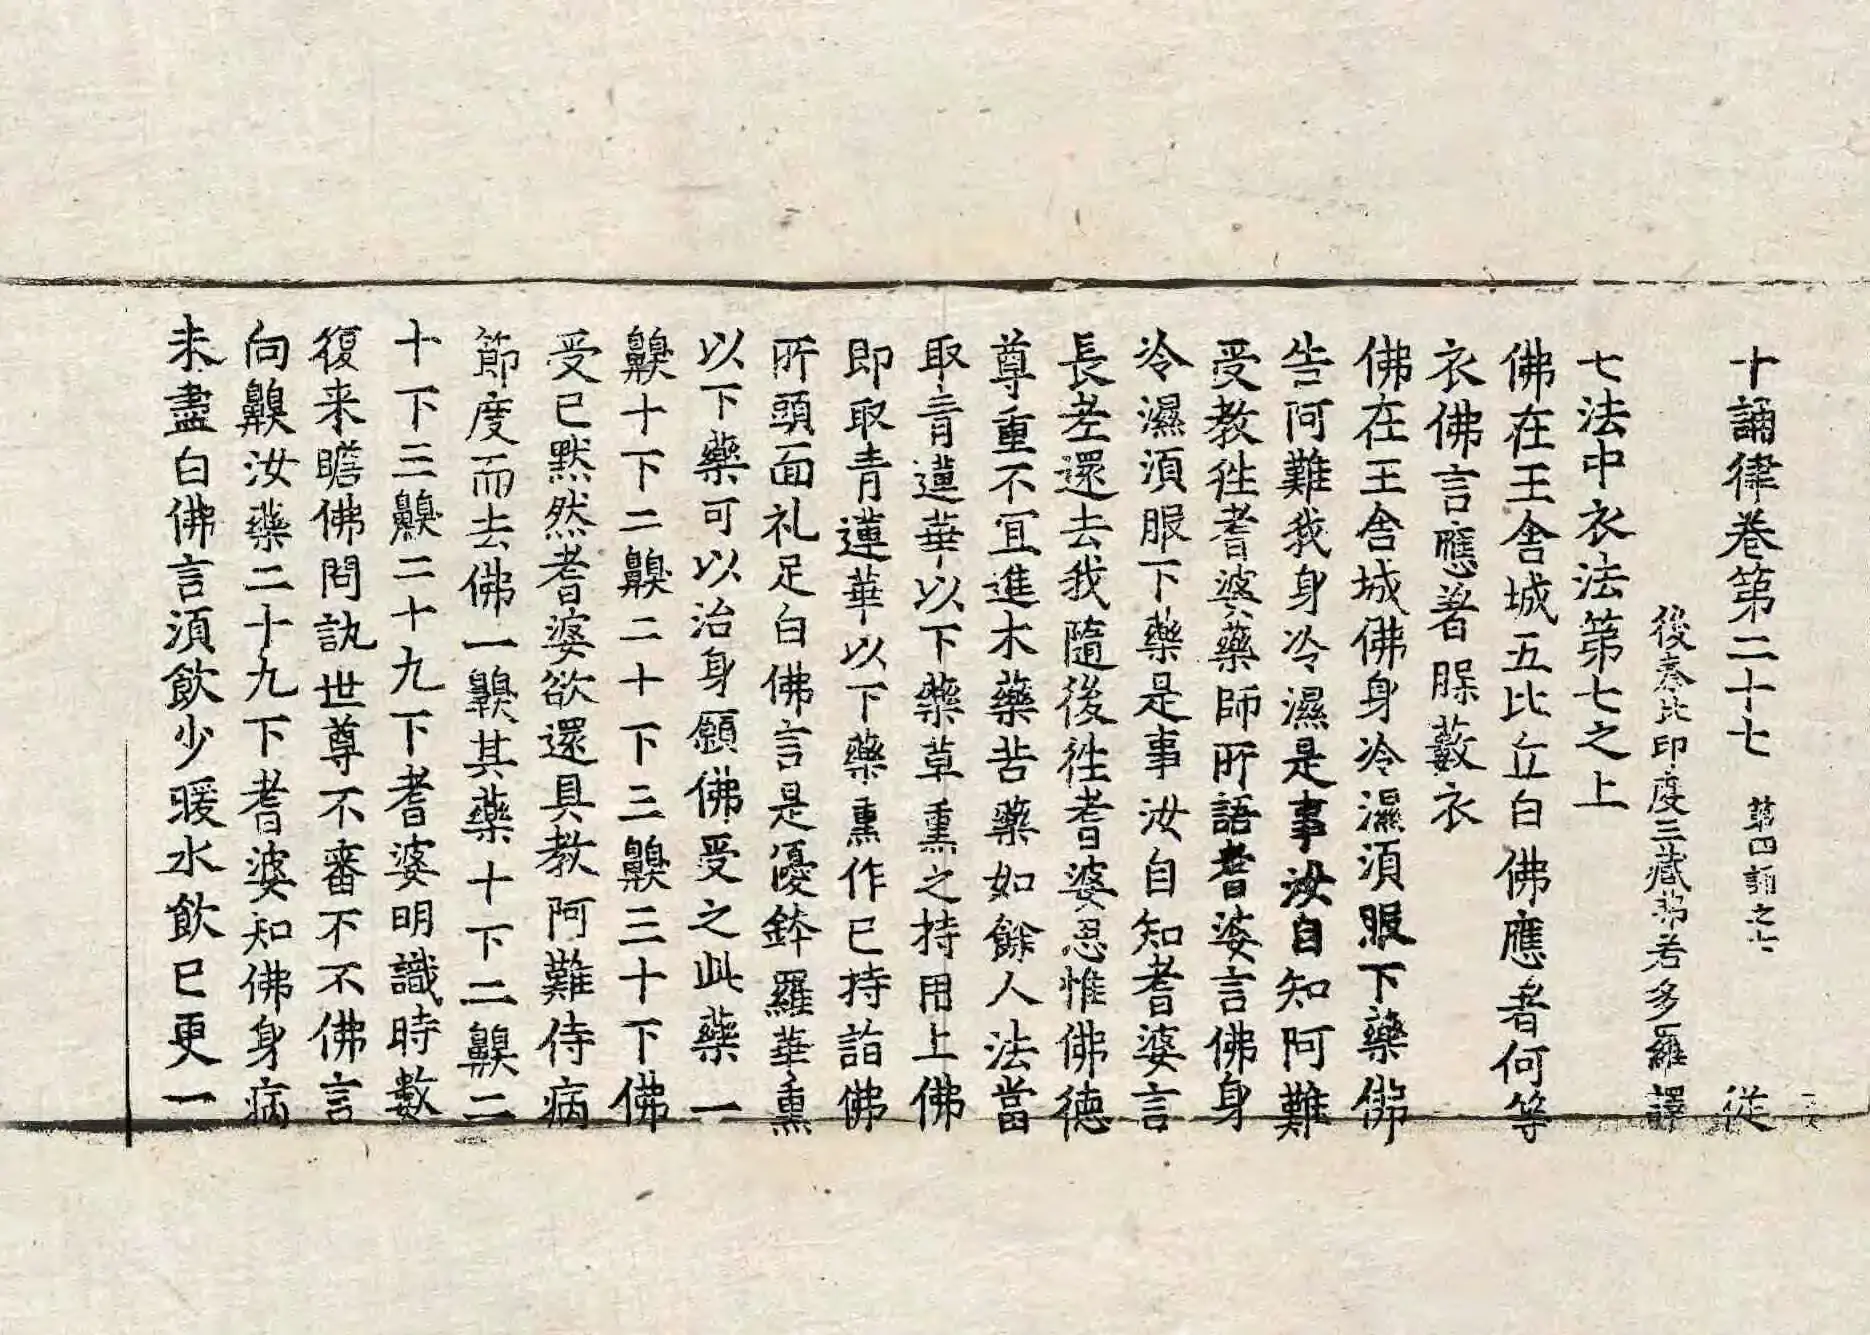 十誦律卷第二十七 第四誦之七 從
後秦北印度三藏弗若多羅譯
七法中衣法第七之上
佛在王舍城五比丘白佛應著何等
衣佛言應著䏶藪衣
佛在王舍城佛身冷濕須服下藥佛
告阿難我身冷濕是事汝自知阿難
受教徃耆婆藥師所語耆婆言佛身
冷濕須服下藥是事汝自知耆婆言
長老還去我隨後徃耆婆思惟佛德
尊重不冝進木藥苦藥如餘人法當
取青蓮華以下藥草熏之持用上佛
即取青蓮華以下藥熏作已持詣佛
所頭面礼足白佛言是優鉢羅華熏
以下藥可以治身願佛受之此藥一
齅十下二齅二十下三齅三十下佛
受已默然耆婆欲還具教阿難侍病
節度而去佛一齅其藥十下二齅二
十下三齅二十九下耆婆明識時數
復来瞻佛問訊世尊不審下不佛言
向齅汝藥二十九下耆婆知佛身病
未盡白佛言須飲少暖水飲已更一